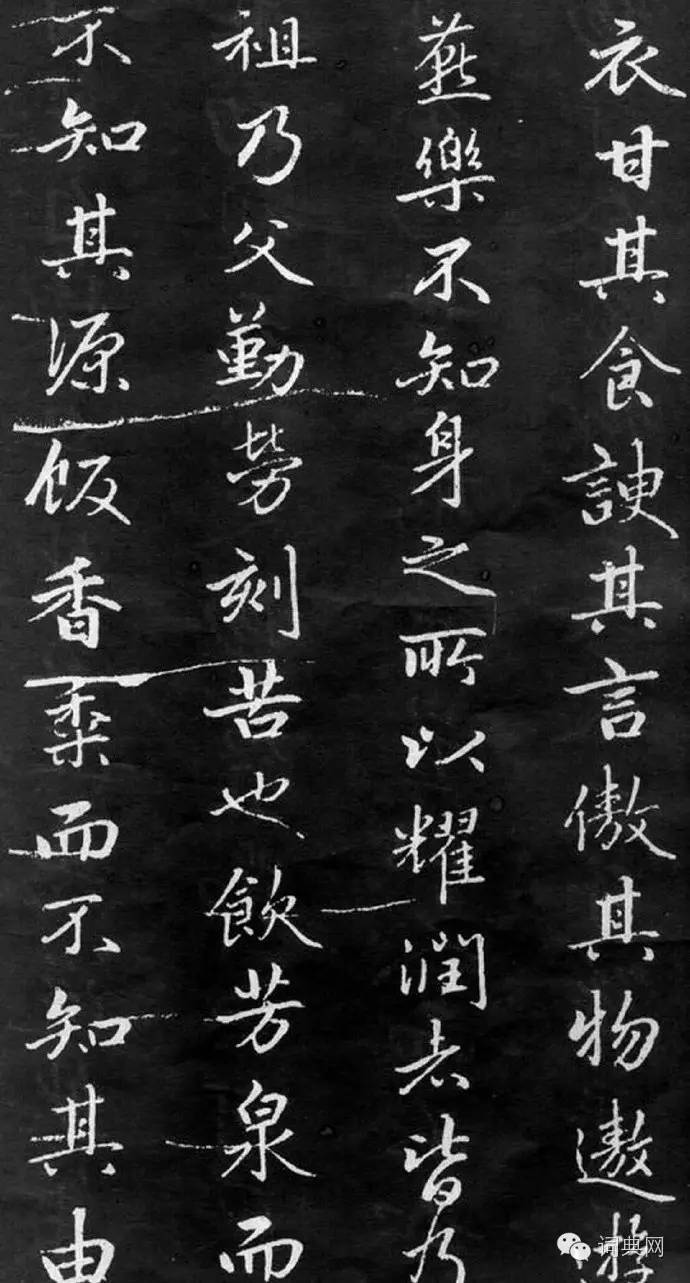 衣甘其食諛其言傲其物遨遊
燕樂不知身之所以耀潤者皆乃
祖乃父勤勞刻苦也飲芳泉而
不知其源飯香黍而不知其由
词典网